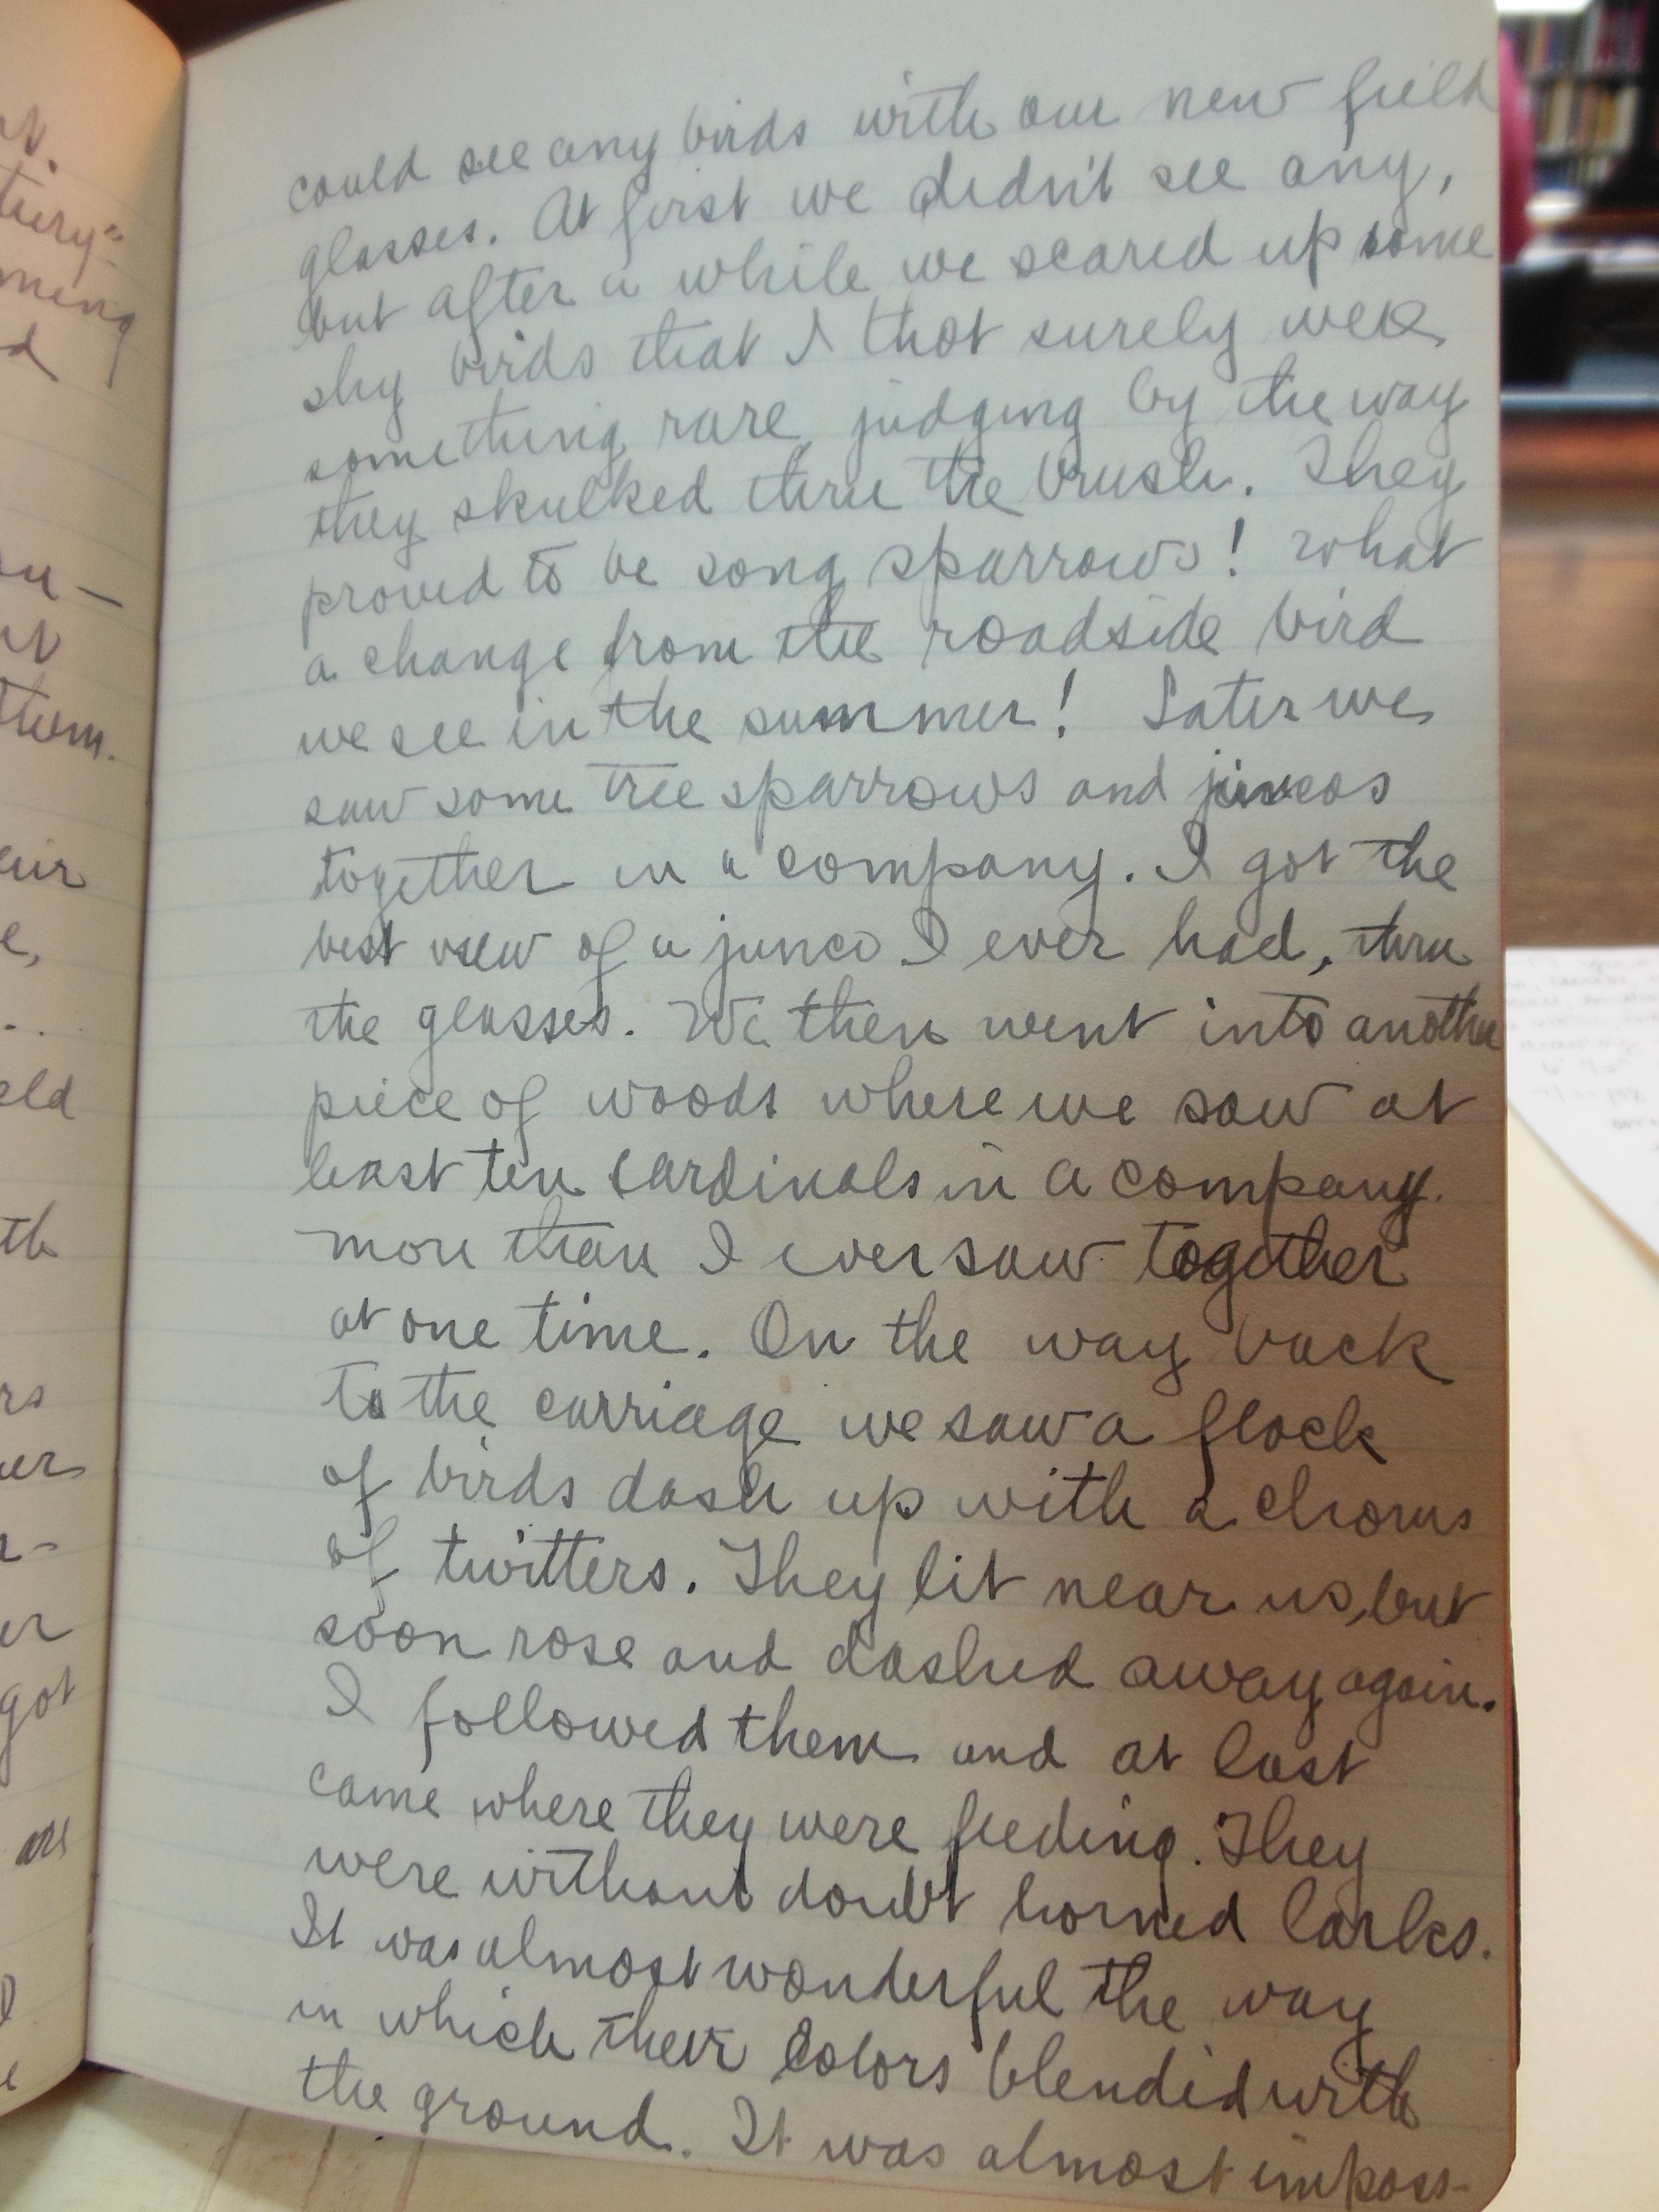 could see any birds with our new field
glasses. At first we didn't see any,
but after a while we scared up some
shy birds that I thot surely were
something rare, judging by the way
they skulked thru the brush. They
proved to be song sparrows! What
a change from the roadside bird
we see in the summer! Later we
saw some tree sparrows and juncos
together in a company. I got the
best view of a junco I ever had, thru
the glasses. We then went into another
piece of woods where we saw at
least ten cardinals in a company.
more than I ever saw together
at one time. On the way back
to the carriage we saw a flock
of birds dash up with a chorus
of twitters. They lit near us, but
soon rose and dashed away again.
I followed them and at last
came where they were feeding. They
were without doubt horned larks.
It was almost wonderful the way
in which their colors blended with
the ground. It was almost imposs-